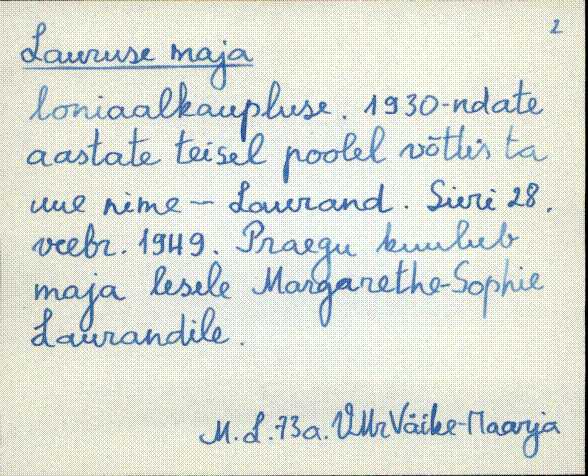 2
Lauruse maja
loniaalkaupluse. 1930-ndate
aastate teisel poolel võttis ta
uue nime - Laurand. Suri 28.
veebr. 1949. Praegu kuulub
maja lesele Margarethe-Sophie
Laurandile.
M. L. 73a. VMr Väike-Maarja